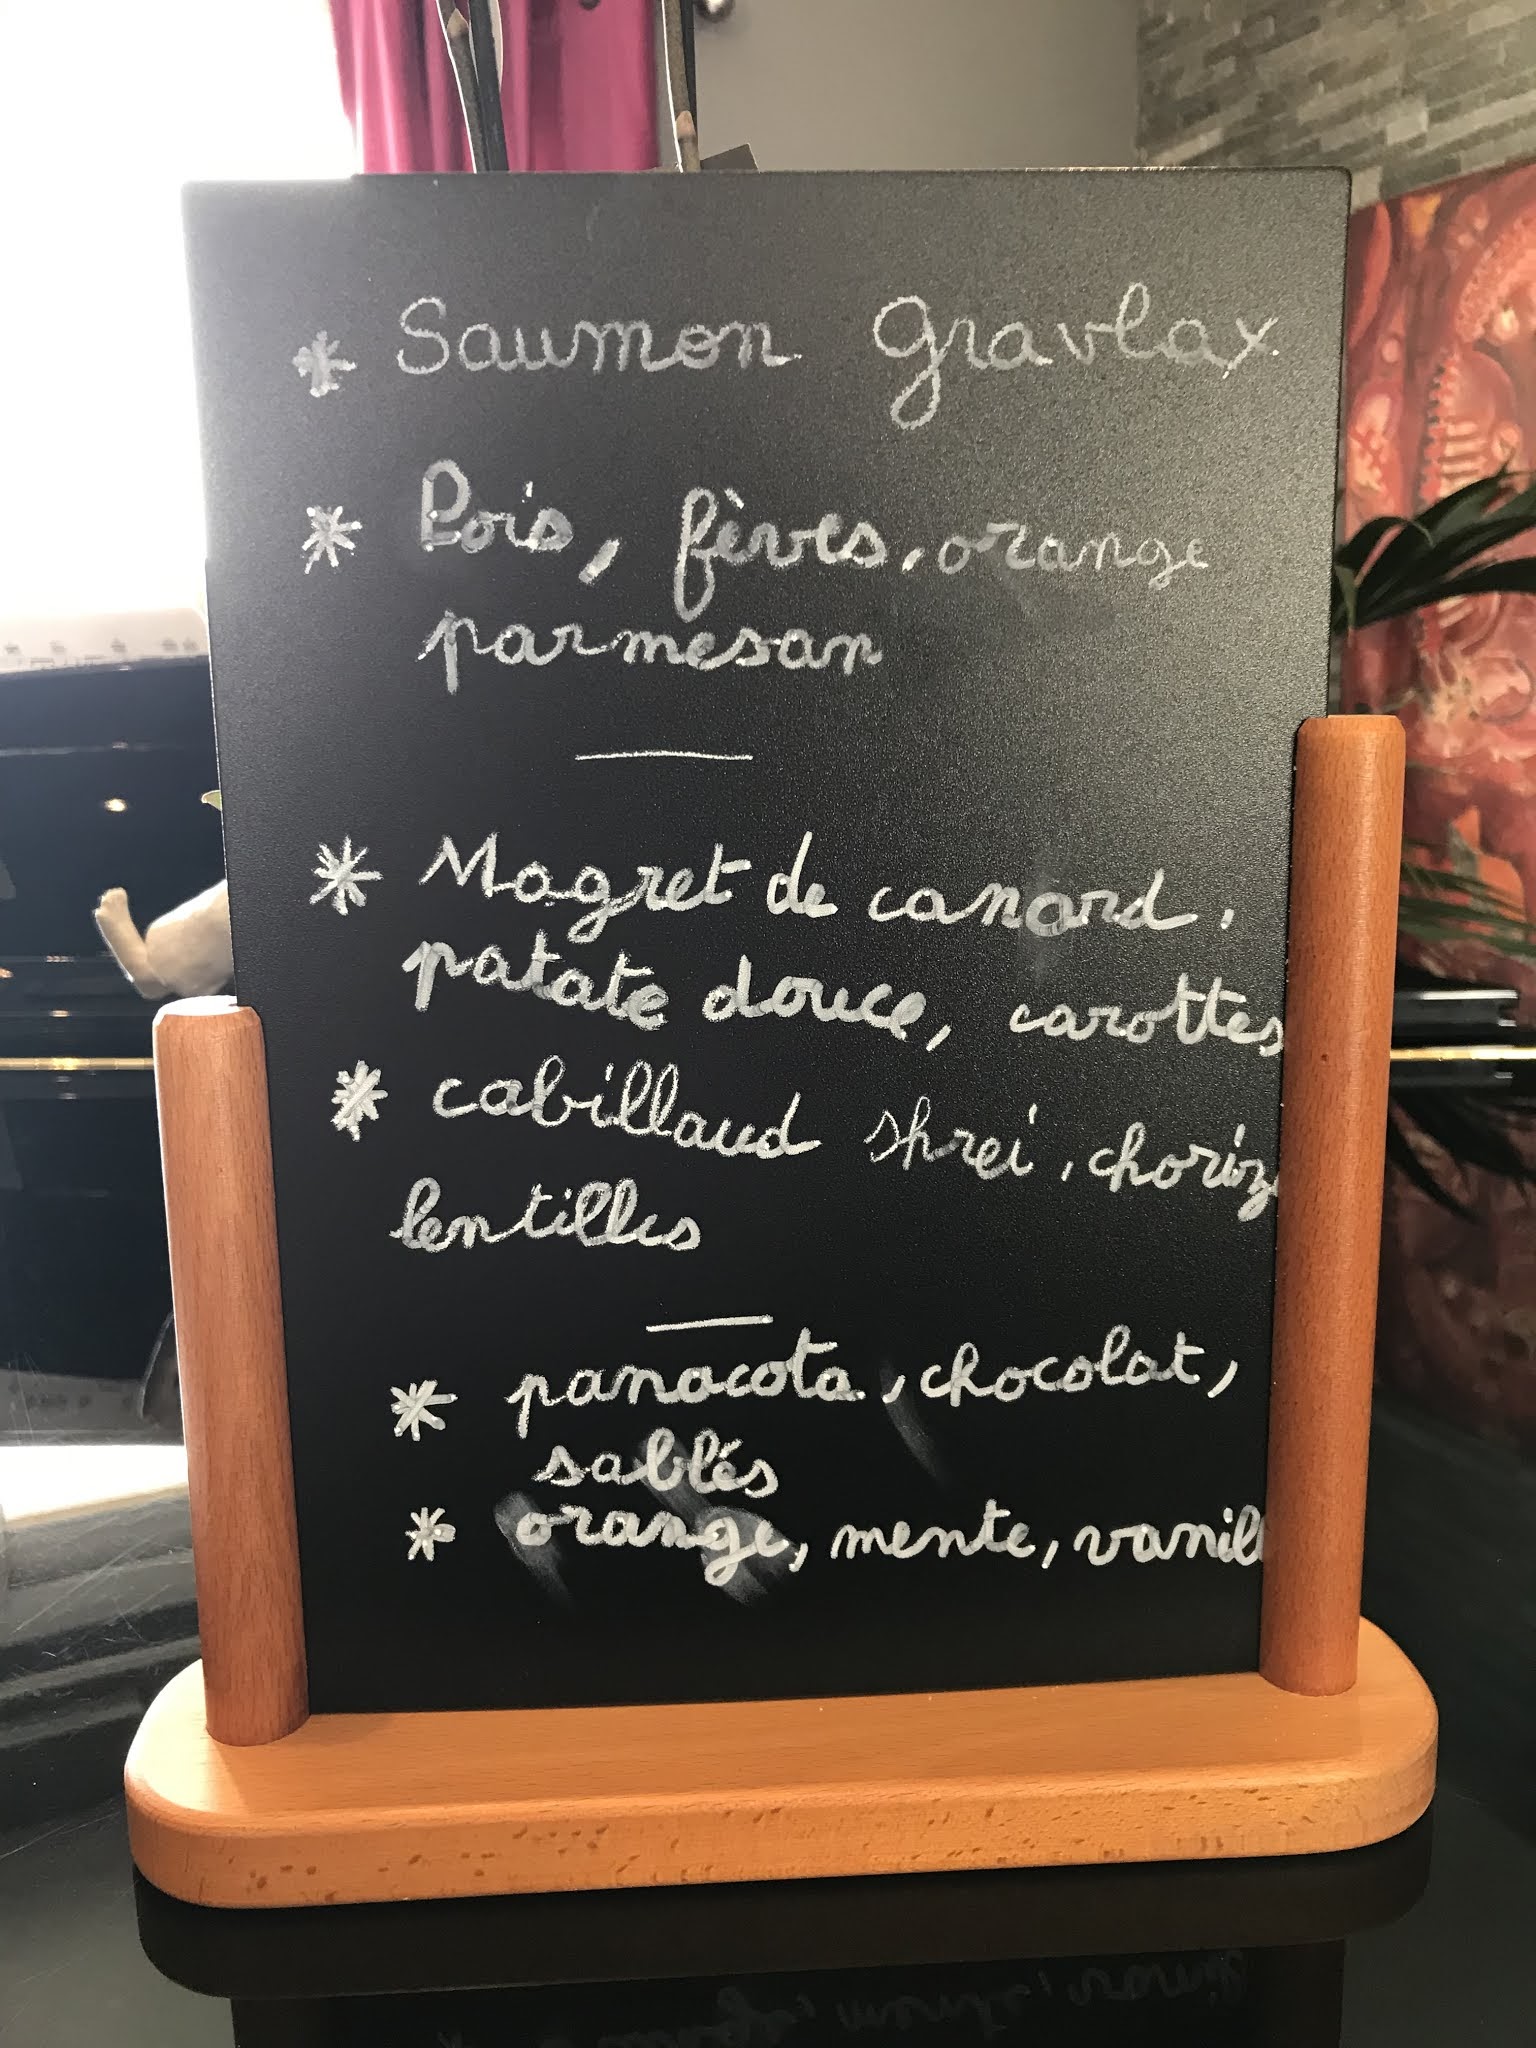 * Saumon gravlax
* Pois, fèves, orange
parmesan
* Magret de canard,
patate douce, carottes
* cabillaud shrei, choriz
lentilles
* panacota, chocolat,
sablés
* orange, mente, vanill